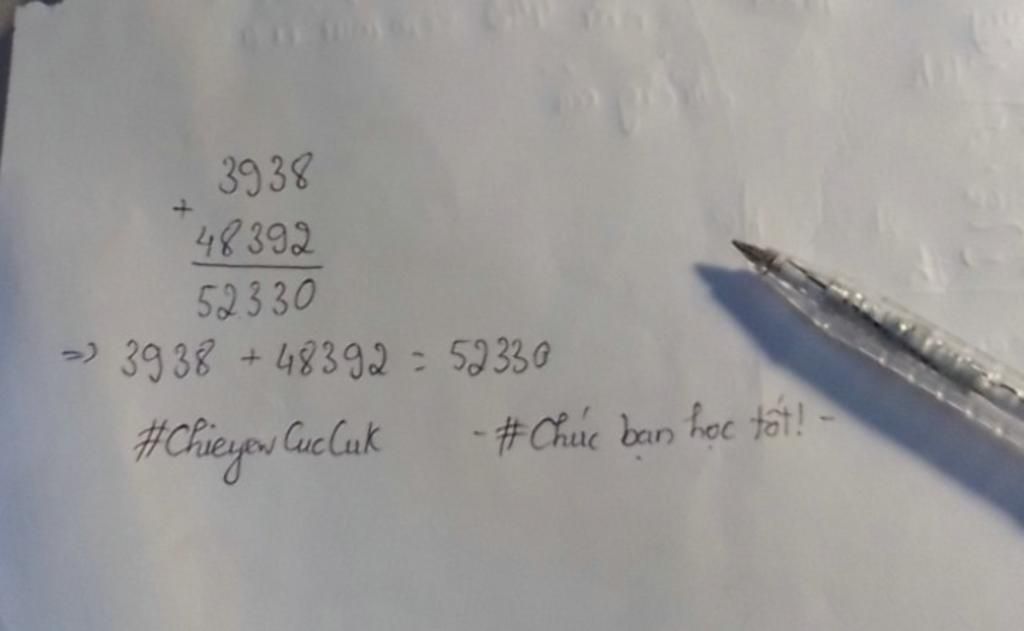 3938
+
48392
52330
=> 3938 + 48392 = 52330
#ChieyewCucCuk - #Chúc bạn học tốt! -